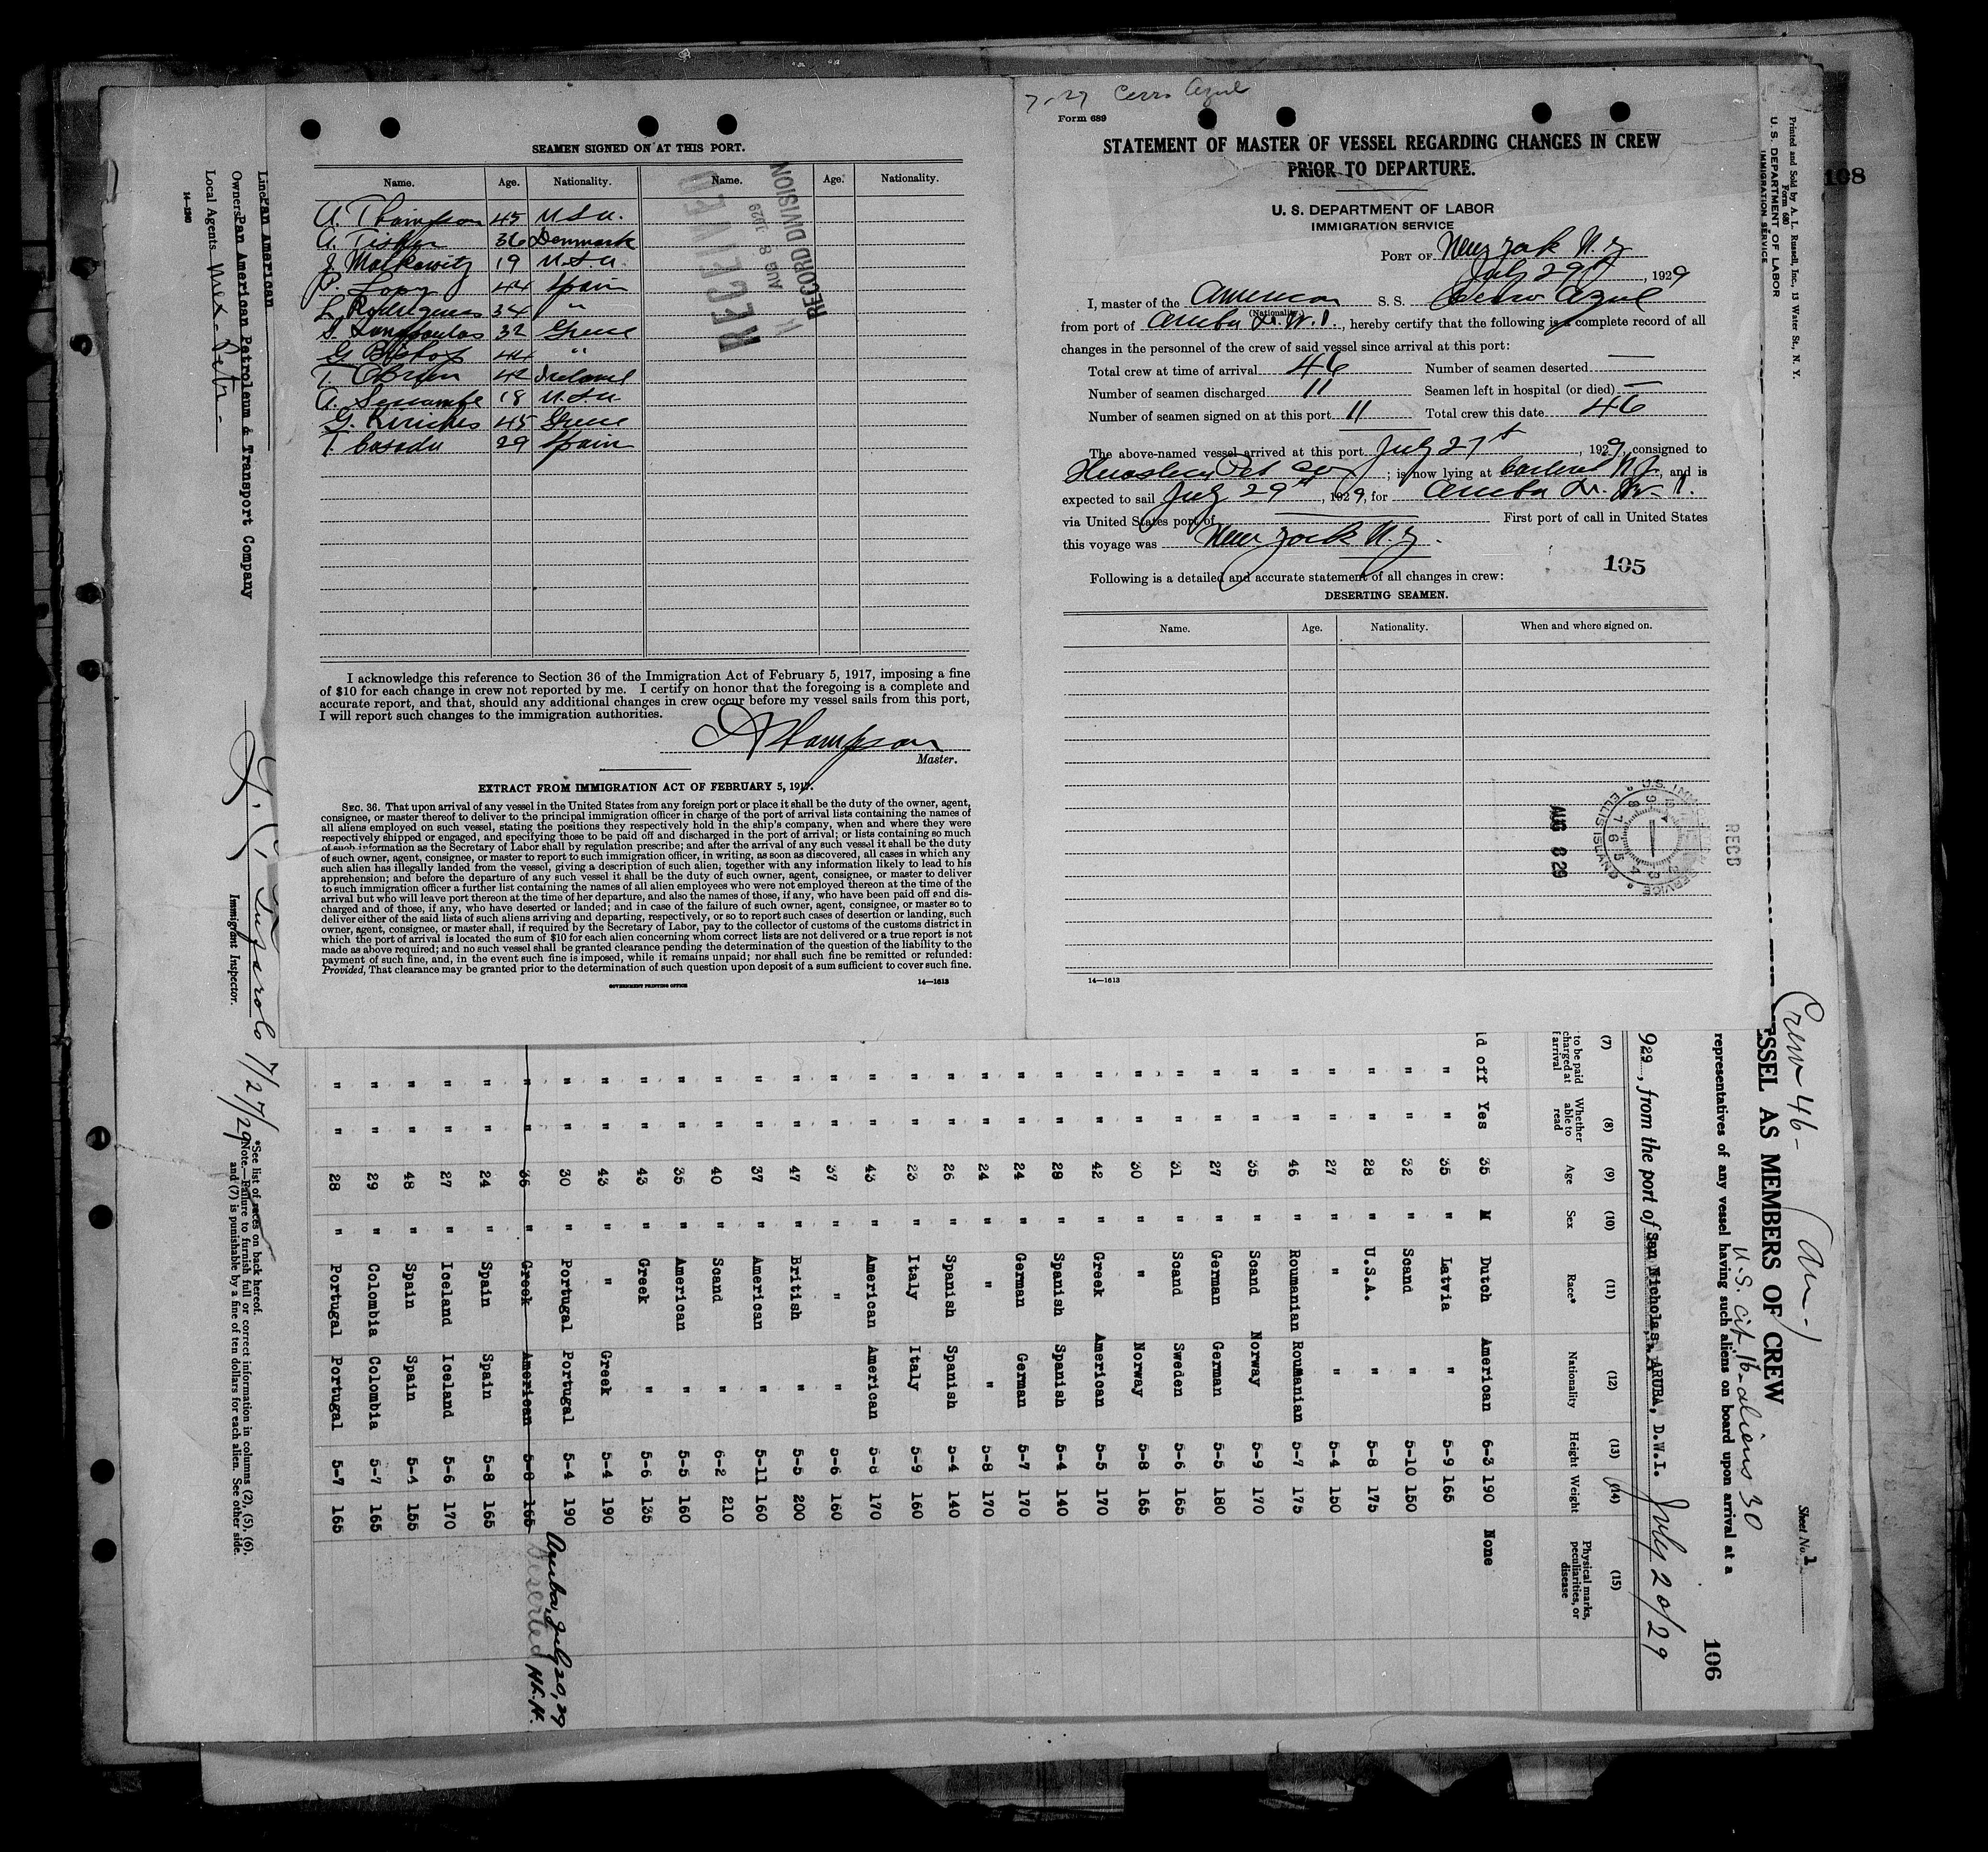 108
SEAMEN SIGNED ON AT THIS PORT.
Name. Age. Nationality. Name. Age. Nationality.
A. Thompson 45 U.S.A.
A. 36 Denmark
J. Malkowitz 19 U.S.A.
P. Lopez 44 Spain
L. Rodriguez 34 "
32 Greece
G. Bishop 44 "
T. O'Brien 42 Ireland
A. 18 U.S.A.
G. 45 Greece
T. Casada 29 Spain
RECEIVED
AUG 8 1929
RECORD DIVISION
I acknowledge this reference to Section 36 of the Immigration Act of February 5, 1917, imposing a fine
of $10 for each change in crew not reported by me. I certify on honor that the foregoing is a complete and
accurate report, and that, should any additional changes in crew occur before my vessel sails from this port,
I will report such changes to the immigration authorities.
A Thompson
Master.
EXTRACT FROM IMMIGRATION ACT OF FEBRUARY 5, 1917.
SEC. 36. That upon arrival of any vessel in the United States from any foreign port or place it shall be the duty of the owner, agent,
consignee, or master thereof to deliver to the principal immigration officer in charge of the port of arrival lists containing the names of
all aliens employed on such vessel, stating the positions they respectively hold in the ship's company, when and where they were
respectively shipped or engaged, and specifying those to be paid off and discharged in the port of arrival; or lists containing so much
of such information as the Secretary of Labor shall by regulation prescribe; and after the arrival of any such vessel it shall be the duty
of such owner, agent, consignee, or master to report to such immigration officer, in writing, as soon as discovered, all cases in which any
such alien has illegally landed from the vessel, giving a description of such alien, together with any information likely to lead to his
apprehension; and before the departure of any such vessel it shall be the duty of such owner, agent, consignee, or master to deliver
to such immigration officer a further list containing the names of all alien employees who were not employed thereon at the time of the
arrival but who will leave port thereon at the time of her departure, and also the names of those, if any, who have been paid off and dis-
charged and of those, if any, who have deserted or landed; and in case of the failure of such owner, agent, consignee, or master so to
deliver either of the said lists of such aliens arriving and departing, respectively, or so to report such cases of desertion or landing, such
owner, agent, consignee, or master shall, if required by the Secretary of Labor, pay to the collector of customs of the customs district in
which the port of arrival is located the sum of $10 for each alien concerning whom correct lists are not delivered or a true report is not
made as above required; and no such vessel shall be granted clearance pending the determination of the question of the liability to the
payment of such fine, and, in the event such fine is imposed, while it remains unpaid; nor shall such fine be remitted or refunded:
Provided, That clearance may be granted prior to the determination of such question upon deposit of a sum sufficient to cover such fine.
GOVERNMENT PRINTING OFFICE 14—1613
7-27 Cerro Azul
Form 689
STATEMENT OF MASTER OF VESSEL REGARDING CHANGES IN CREW
PRIOR TO DEPARTURE.
U. S. DEPARTMENT OF LABOR
IMMIGRATION SERVICE
PORT OF New York N.Y.
July 29th, 1929
I, master of the American S. S. Cerro Azul
(Nationality)
from port of Aruba D.W.I., hereby certify that the following is a complete record of all
changes in the personnel of the crew of said vessel since arrival at this port:
Total crew at time of arrival 46 Number of seamen deserted —
Number of seamen discharged 11 Seamen left in hospital (or died) —
Number of seamen signed on at this port 11 Total crew this date 46
The above-named vessel arrived at this port July 27th, 1929, consigned to
Huasteca Pet Co; is now lying at Carteret N.J., and is
expected to sail July 29th, 1929, for Aruba D.W.I.
via United States port of — First port of call in United States
this voyage was New York N.Y.
105
Following is a detailed and accurate statement of all changes in crew:
DESERTING SEAMEN.
Name. Age. Nationality. When and where signed on.
RECD
AUG 8 29
U.S. IMMIGRATION SERVICE ELLIS ISLAND
14—1613
Printed and Sold by A. L. Russell, Inc., 13 Water St., N. Y.
Form 680
U. S. DEPARTMENT OF LABOR
IMMIGRATION SERVICE
Sheet No. 1
106
Crew 46 - (Am-)
U.S. cit. 16 - aliens 30
ESSEL AS MEMBERS OF CREW
representatives of any vessel having such aliens on board upon arrival at a
929, from the port of San Nicholas, ARUBA, D.W.I. July 20/29
(7) (8) (9) (10) (11) (12) (13) (14) (15)
to be paid charged at arrival Whether able to read Age Sex Race* Nationality Height Weight Physical marks, peculiarities, or disease
d off Yes 35 M Dutch American 6-3 190 None
" " 35 " Latvia " 5-9 165
" " 32 " Scand " 5-10 150
" " 28 " U.S.A. " 5-8 175
" " 27 " " " 5-4 150
" " 46 " Roumanian Roumanian 5-7 175
" " 35 " Scand Norway 5-9 170
" " 27 " German German 5-5 180
" " 31 " Scand Sweden 5-6 165
" " 30 " " Norway 5-8 165
" " 42 " Greek American 5-5 170
" " 29 " Spanish Spanish 5-4 140
" " 24 " German German 5-7 170
" " 24 " " " 5-8 170
" " 26 " Spanish Spanish 5-4 140
" " 23 " Italy Italy 5-9 160
" " 43 " American American 5-8 170
" " 37 " " " 5-6 160
" " 47 " British " 5-5 200
" " 37 " American " 5-11 160
" " 40 " Scand " 6-2 210
" " 35 " American " 5-5 160
" " 43 " Greek " 5-6 135
" " 43 " " Greek 5-4 190
" " 30 " Portugal Portugal 5-4 190
" " 36 " Greek American 5-8 165 Deserted Aruba, July 20, 29 H.H.
" " 24 " Spain Spain 5-8 165
" " 27 " Iceland Iceland 5-6 170
" " 48 " Spain Spain 5-4 155
" " 29 " Colombia Colombia 5-7 165
" " 28 " Portugal Portugal 5-7 165
*See list of races on back hereof.
Note.—Failure to furnish full or correct information in columns (2), (5), (6),
and (7) is punishable by a fine of ten dollars for each alien. See other side.
7/27/29
Immigrant Inspector.
Line Pan American
Owners Pan American Petroleum & Transport Company
Local Agents Mex - Petr -
14—1240